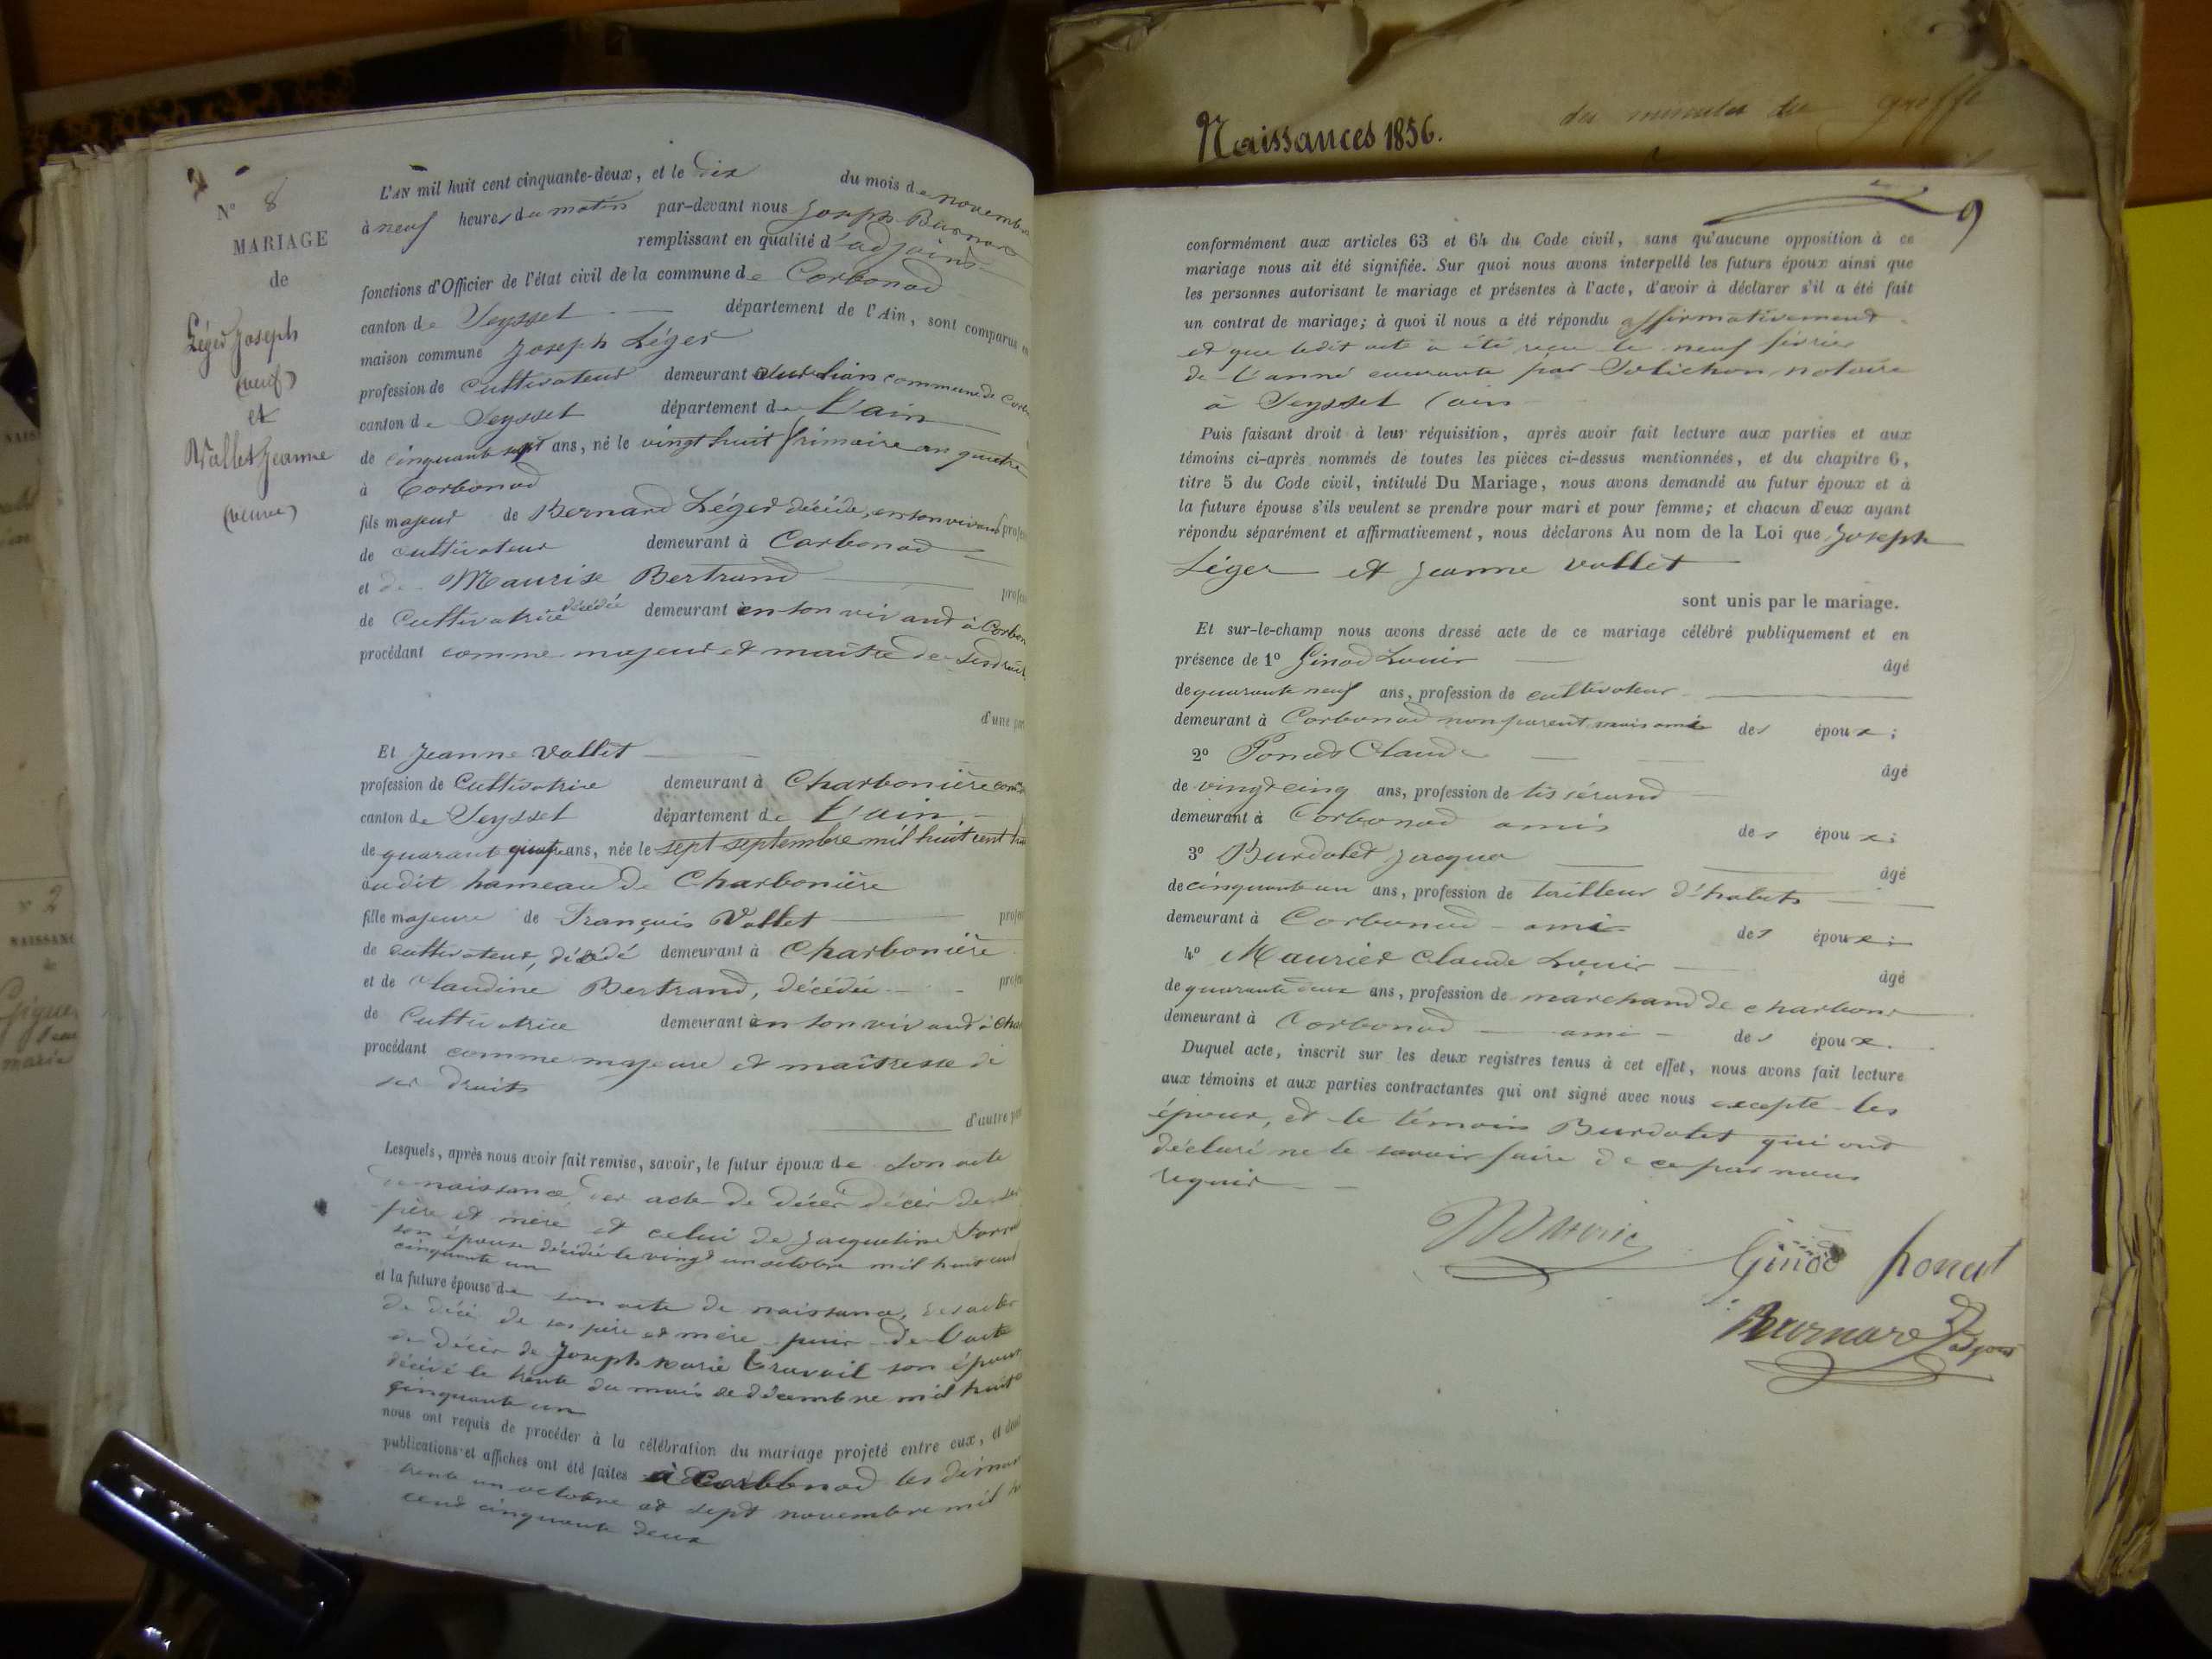 Naissances 1856.
des minutes du greffe
N° 8
MARIAGE
de
Léger Joseph
(veuf)
et
Vallet Jeanne
(veuve)
L'AN mil huit cent cinquante-deux, et le dix du mois de novembre
à neuf heures du matin par-devant nous Joseph Barnard
remplissant en qualité d'adjoint
fonctions d'Officier de l'état civil de la commune de Corbonod
canton de Seyssel département de l'Ain, sont comparus en
maison commune Joseph Léger
profession de cultivateur demeurant à commune de
canton de Seyssel département de L'ain
de cinquante sept ans, né le vingt huit frimaire an quatre
à Corbonod
fils majeur de Bernard Léger décédé, en son vivant
de cultivateur demeurant à Corbonod
et de Maurise Bertrand
de Cultivatrice décédée demeurant en son vivant à Corbon
procédant comme majeur et maître de ses droits
d'une
Et Jeanne Vallet
profession de Cultivatrice demeurant à Charbonière
canton de Seyssel département de L'ain
de quarant ans, née le sept septembre mil huit cent
au dit hameau de Charbonière
fille majeure de François Vallet
de cultivateur, décédé demeurant à Charbonière
et de Claudine Bertrand, décédée
de Cultivatrice demeurant en son vivant à
procédant comme majeure et maîtresse de
ses droits
d'autre
Lesquels, après nous avoir fait remise, savoir, le futur époux de son acte
de naissance, des acte de décès décès de ses
père et mère et celui de Jacqueline
son épouse décédée le vingt un octobre mil huit cent
cinquante un
et la future épouse de son acte de naissance, des actes
de décé de ses père et mère puis de l'acte
de décès de Joseph marie Travail son époux
décédé le trente du mois de décembre mil huit
cinquante un
nous ont requis de procéder à la célébration du mariage projeté entre eux, et dont
publications et affiches ont été faites à Corbonod les diman
trente un octobre et sept novembre mil
cent cinquante deux
9
conformément aux articles 63 et 64 du Code civil, sans qu'aucune opposition à ce
mariage nous ait été signifiée. Sur quoi nous avons interpellé les futurs époux ainsi que
les personnes autorisant le mariage et présentes à l'acte, d'avoir à déclarer s'il a été fait
un contrat de mariage; à quoi il nous a été répondu affirmativement
et que ledit acte a été reçu le neuf février
de l'anné courante par notaire
à Seyssel (ain
Puis faisant droit à leur réquisition, après avoir fait lecture aux parties et aux
témoins ci-après nommés de toutes les pièces ci-dessus mentionnées, et du chapitre 6,
titre 5 du Code civil, intitulé Du Mariage, nous avons demandé au futur époux et à
la future épouse s'ils veulent se prendre pour mari et pour femme; et chacun d'eux ayant
répondu séparément et affirmativement, nous déclarons Au nom de la Loi que Joseph
Léger et Jeanne Vallet
sont unis par le mariage.
Et sur-le-champ nous avons dressé acte de ce mariage célébré publiquement et en
présence de 1° Ginod Louis âgé
de quarante neuf ans, profession de cultivateur
demeurant à Corbonod non parent mais ami des époux;
2° Poncet Claude âgé
de vingt cinq ans, profession de tissérand
demeurant à Corbonod amis des époux;
3° Burdolet Jacque âgé
de cinquante un ans, profession de tailleur d'habits
demeurant à Corbonod ami des époux;
4° Maurier Claude Louis âgé
de quarante deux ans, profession de marchand de charbons
demeurant à Corbonod ami des époux.
Duquel acte, inscrit sur les deux registres tenus à cet effet, nous avons fait lecture
aux témoins et aux parties contractantes qui ont signé avec nous excepté les
époux, et le témoin Burdolet qui ont
déclaré ne le savoir faire de ce par nous
requis
Maurie
Ginod Poncet
Barnard adjoint